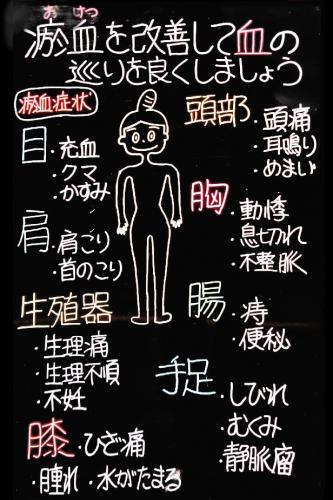 おけつ
瘀血を改善して血の
巡りを良くしましょう
瘀血症状
目
・充血
・クマ
・かすみ
肩
・肩こり
・首のこり
生殖器
・生理痛
・生理不順
・不妊
膝・ひざ痛
・腫れ・水がたまる
頭部
・頭痛
・耳鳴り
・めまい
胸
・動悸
・息切れ
・不整脈
腸
・痔
・便秘
手足
・しびれ
・むくみ
・静脈瘤